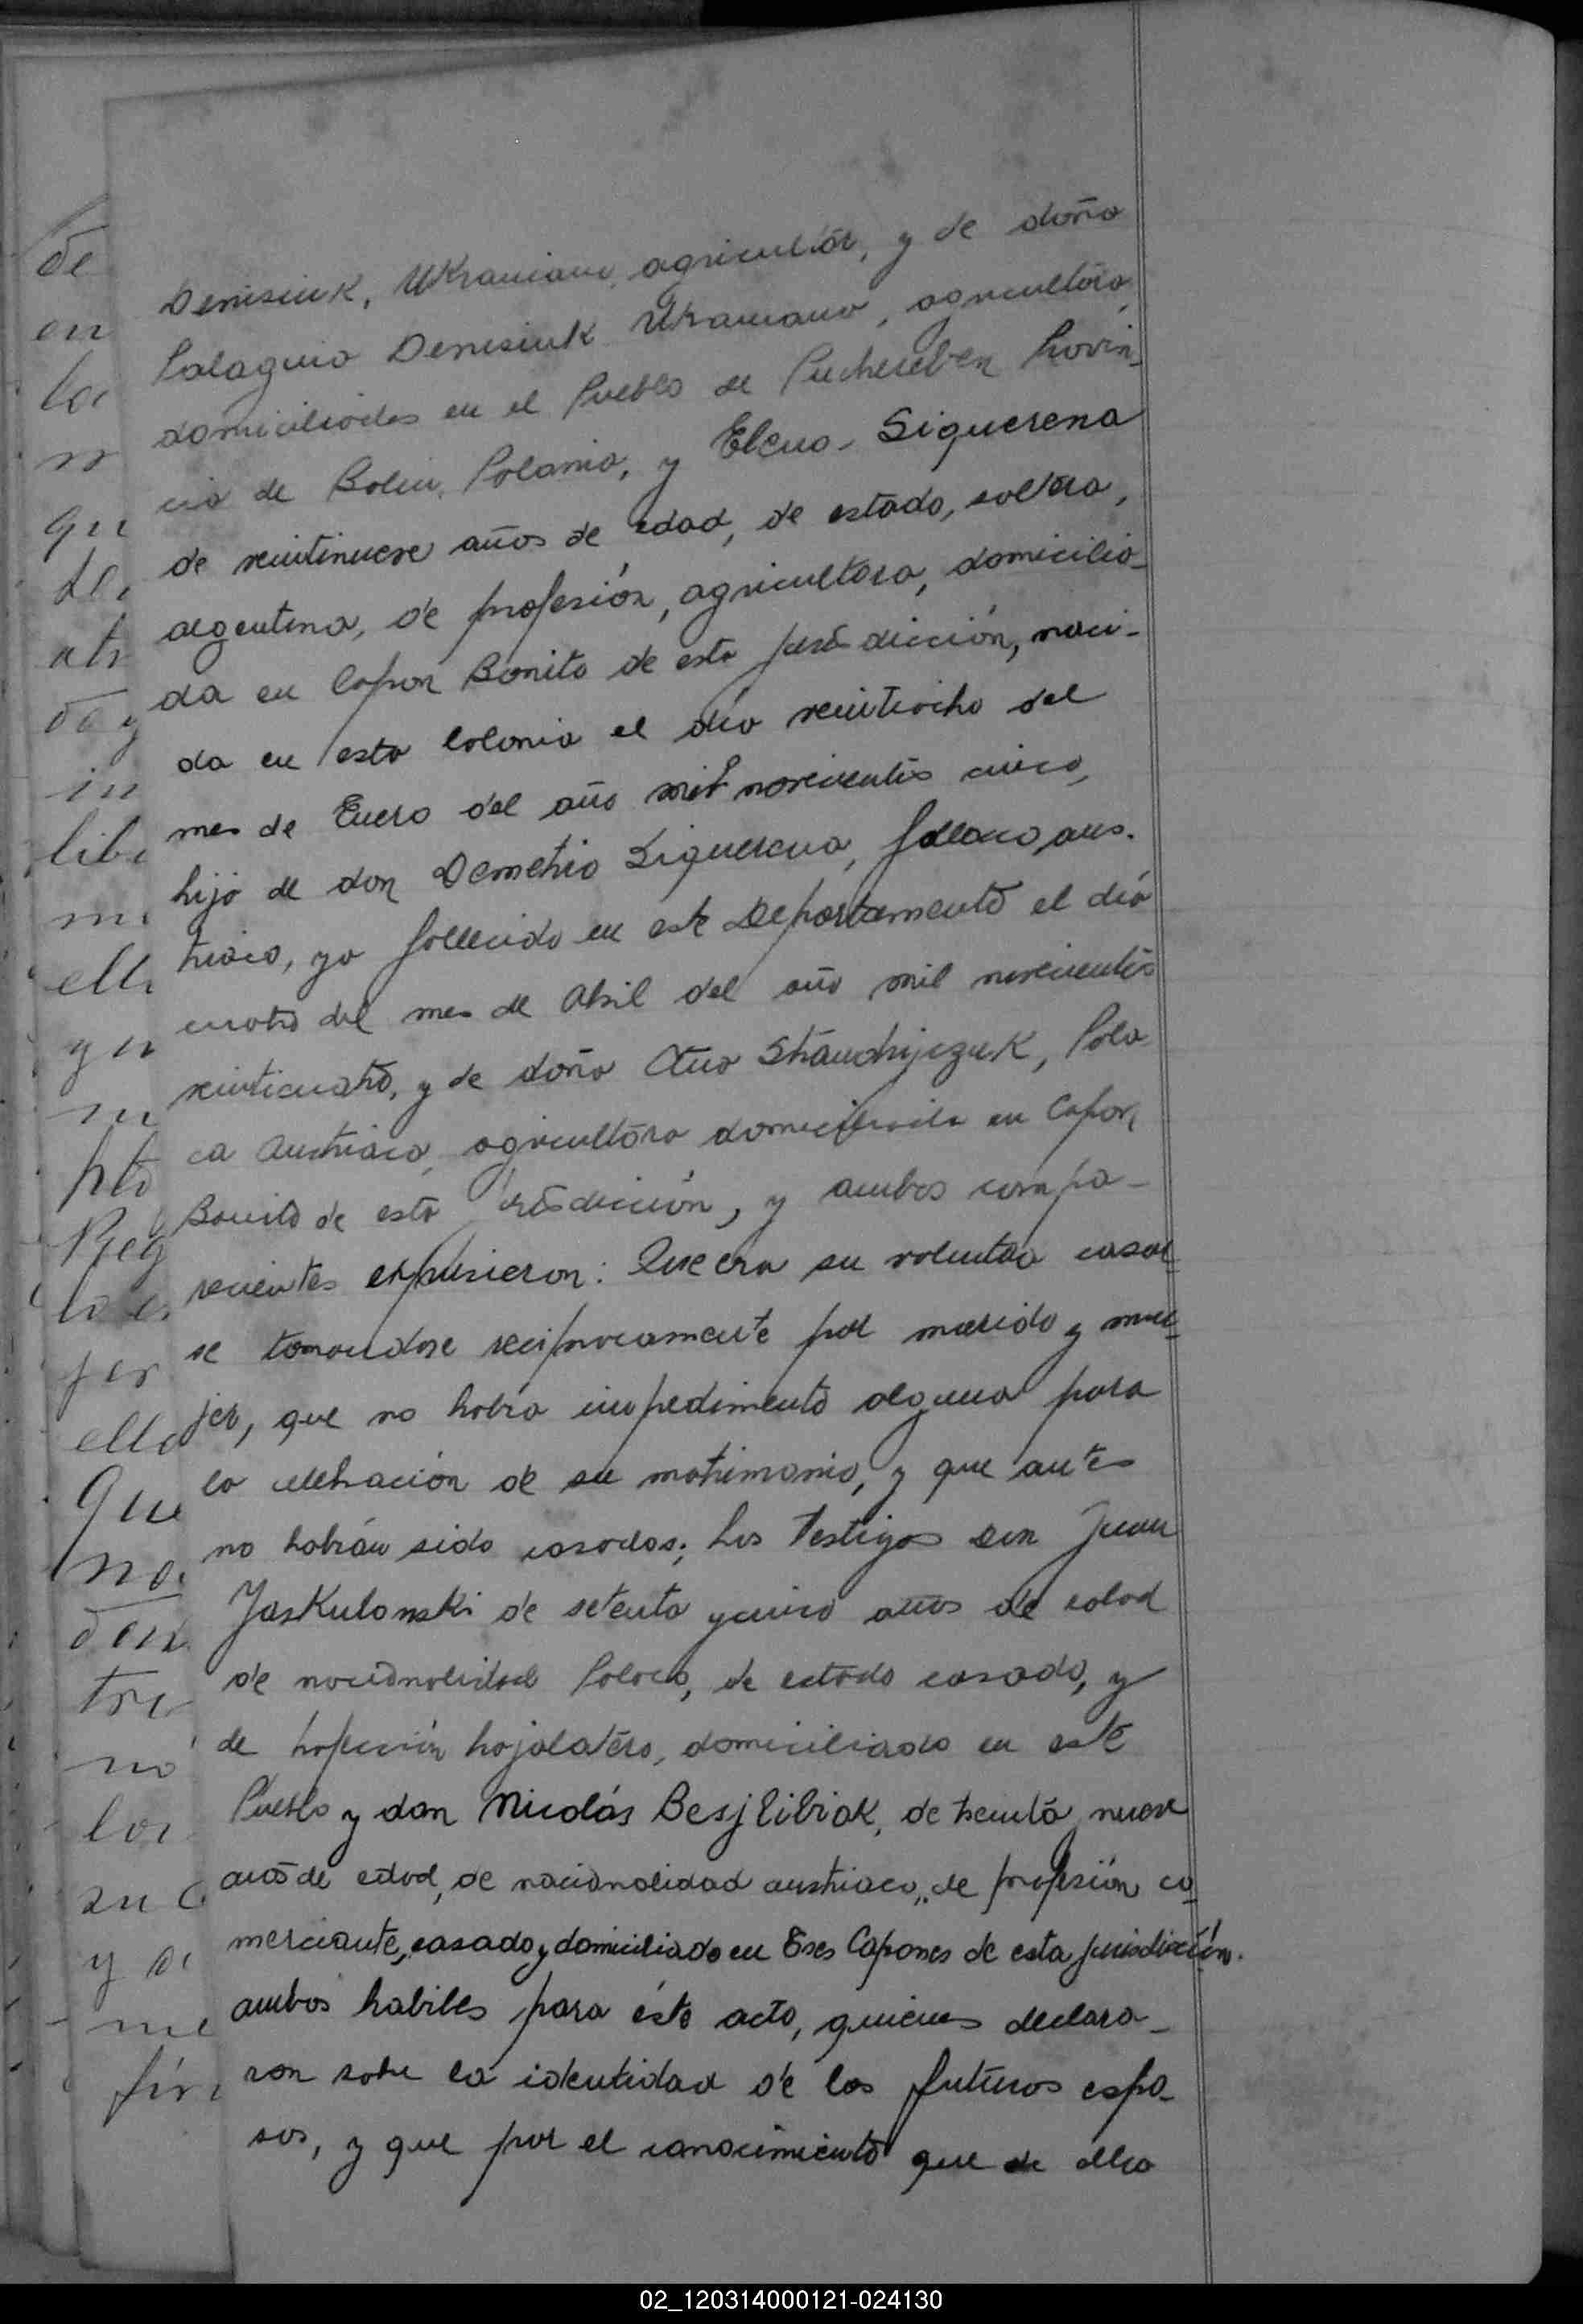 Denisiuk, Ukraniano, agricultor, y de doña
Palaguia Denisiuk Ukraniana, agricultora,
domiciliados en el Pueblo de Provin-
cia de Bolin, Polonia, y Elena Siguerena
de veintinueve años de edad, de estado, soltera,
argentina, de profesión, agricultora, domicilia-
da en Capon Bonito de esta jurisdicción, naci-
da en esta Colonia el día veintiocho del
mes de Enero del año mil novecientos cinco,
hija de don Demetrio Siguerena, polaco, aus-
triaco, ya fallecido en este Departamento el día
cuatro del mes de Abril del año mil novecientos
veinticuatro, y de doña Ana Standryjczuk, Pola-
ca Austriaca, agricultora domiciliada en Capon
Bonito de esta jurisdicción, y ambos compa-
recientes expusieron: Que era su voluntad casar
se tomandose reciprocamente por marido y mu-
jer, que no habia impedimento alguno para
la celebración de su matrimonio, y que antes
no habían sido casados; Los Testigos Don Juan
Jaskulowski de setenta y cinco años de edad
de nacionalidad Polaco, de estado casado, y
de profesión hojalatero, domiciliado en este
Pueblo y don Nicolás Besjlibiak, de treinta y nueve
años de edad, de nacionalidad austriaco, de profesión co-
merciante, casado y domiciliado en Tres Capones de esta jurisdicción.
ambos habiles para éste acto, quienes declara-
ron sobre la identidad de los futuros espo-
sos, y que por el conocimiento que de ellos
de
en
la
n
qu
in
libe
m
ella
y n
m
Reg
fer
ella
Que
no
tre
no
los
su
me
fir
02_120314000121-024130